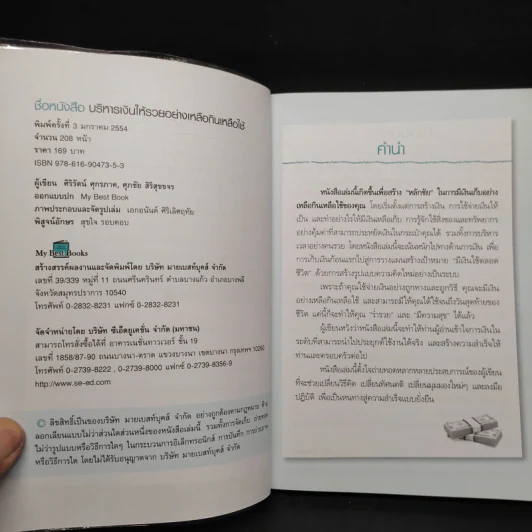 ชื่อหนังสือ บริหารเงินให้รวยอย่างเหลือกินเหลือใช้
พิมพ์ครั้งที่ 3 มกราคม 2554
จำนวน 208 หน้า
ราคา 169 บาท
ISBN 978-616-90473-5-3
ผู้เขียน ศิริรัตน์ ศุกรภาค, ศุภชัย สิริสุขขจร
ออกแบบปก My Best Book
ภาพประกอบและจัดรูปเล่ม เอกอนันต์ ศิริเลิศฤทัย
พิสูจน์อักษร สุขใจ รอบคอบ
My Best Books
สร้างสรรค์ผลงานและจัดพิมพ์โดย บริษัท มายเบสท์บุคส์ จำกัด
เลขที่ 39/339 หมู่ที่ 11 ถนนศรีนครินทร์ ตำบลบางแก้ว อำเภอบางพลี
จังหวัดสมุทรปราการ 10540
โทรศัพท์ 0-2832-8231 แฟกซ์ 0-2832-8231
จัดจำหน่ายโดย บริษัท ซีเอ็ดยูเคชั่น จำกัด (มหาชน)
สามารถโทรสั่งซื้อได้ที่ อาคารเนชั่นทาวเวอร์ ชั้น 19
เลขที่ 1858/87-90 ถนนบางนา-ตราด แขวงบางนา เขตบางนา กรุงเทพฯ 10260
โทรศัพท์ 0-2739-8222 , 0-2739-8000 แฟกซ์ 0-2739-8356-9
http://www.se-ed.com
© ลิขสิทธิ์เป็นของบริษัท มายเบสท์บุคส์ จำกัด อย่างถูกต้องตามกฎหมาย ห้าม
ลอกเลียนแบบไม่ว่าส่วนใดส่วนหนึ่งของหนังสือเล่มนี้ รวมทั้งการจัดเก็บ ถ่ายทอด
ไม่ว่ารูปแบบหรือวิธีการใดๆ ในกระบวนการอิเล็กทรอนิกส์ การบันทึก การถ่ายภาพ
หรือวิธีการใด โดยไม่ได้รับอนุญาตจาก บริษัท มายเบสท์บุคส์ จำกัด
คำนำ
หนังสือเล่มนี้เกิดขึ้นเพื่อสร้าง "หลักชัย" ในการมีเงินเก็บอย่าง
เหลือกินเหลือใช้ของคุณ โดยเริ่มตั้งแต่การสร้างเงิน การใช้จ่ายเงินให้
เป็น และทำอย่างไรให้มีเงินเหลือเก็บ การรู้จักใช้สิ่งของและทรัพยากร
อย่างคุ้มค่าที่สามารถประหยัดเงินในกระเป๋าคุณได้ รวมทั้งการบริหาร
เวลาอย่างคนรวย โดยหนังสือเล่มนี้จะเน้นหนักไปทางด้านการเงิน เพื่อ
การเก็บเงินก้อนแรกไปสู่การวางแผนสร้างเป้าหมาย "มีเงินใช้ตลอด
ชีวิต" ด้วยการสร้างรูปแบบความคิดใหม่อย่างเป็นระบบ
เพราะถ้าคุณใช้จ่ายเงินอย่างถูกทางและถูกวิธี คุณจะมีเงิน
อย่างเหลือกินเหลือใช้ และสามารถมีให้คุณได้ใช้จนถึงวันสุดท้ายของ
ชีวิต แค่นี้ก็จะทำให้คุณ "ร่ำรวย" และ "มีความสุข" ได้แล้ว
ผู้เขียนหวังว่าหนังสือเล่มนี้จะทำให้ท่านผู้อ่านเข้าใจการเงินใน
ระดับที่สามารถนำไปประยุกต์ใช้งานได้จริง และสร้างความสำเร็จให้
ท่านและครอบครัวต่อไป
หนังสือเล่มนี้ตั้งใจถ่ายทอดหลากหลายประสบการณ์ของผู้เขียน
ที่จะช่วยเปลี่ยนวิธีคิด เปลี่ยนทัศนคติ เปลี่ยนมุมมองใหม่ๆ และลงมือ
ปฏิบัติ เพื่อเป็นหนทางสู่ความสำเร็จแบบยั่งยืน